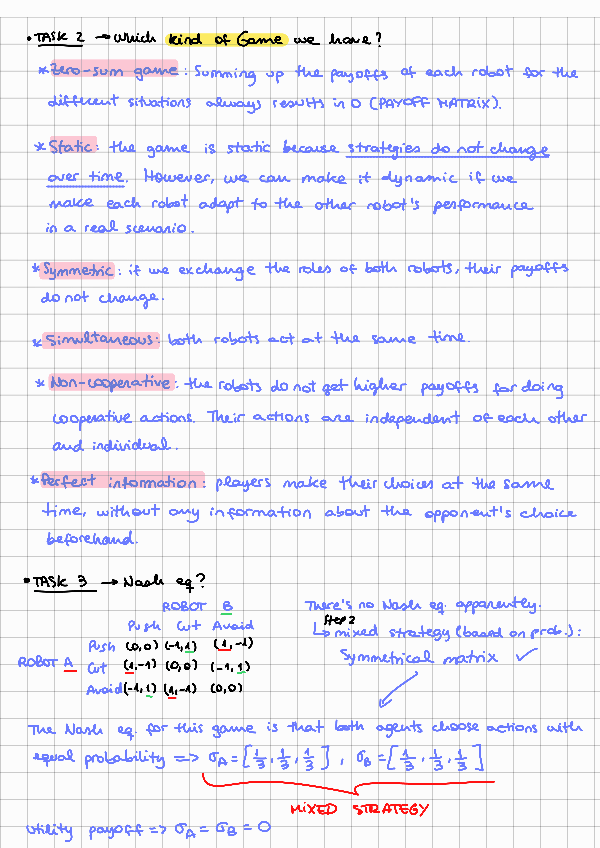 • TASK 2 → Which kind of Game we have?
* Zero-sum game: Summing up the payoffs of each robot for the
different situations always results in 0 (PAYOFF MATRIX).
* Static: the game is static because strategies do not change
over time. However, we can make it dynamic if we
make each robot adapt to the other robot's performance
in a real scenario.
* Symmetric: if we exchange the roles of both robots, their payoffs
do not change.
* Simultaneous: both robots act at the same time.
* Non-cooperative: the robots do not get higher payoffs for doing
cooperative actions. Their actions are independent of each other
and individual.
* Perfect information: players make their choices at the same
time, without any information about the opponent's choice
beforehand.
• TASK 3 → Nash eq?
ROBOT B
Push Cut Avoid
Push (0,0) (-1,1) (1,-1)
ROBOT A Cut (1,-1) (0,0) (-1,1)
Avoid (-1,1) (1,-1) (0,0)
There's no Nash eq. apparently.
Step 2
↳ mixed strategy (based on prob.):
Symmetrical matrix ✓
The Nash eq. for this game is that both agents choose actions with
equal probability => σA = [1/3, 1/3, 1/3], σB = [1/3, 1/3, 1/3]
MIXED STRATEGY
Utility payoff => σA = σB = 0